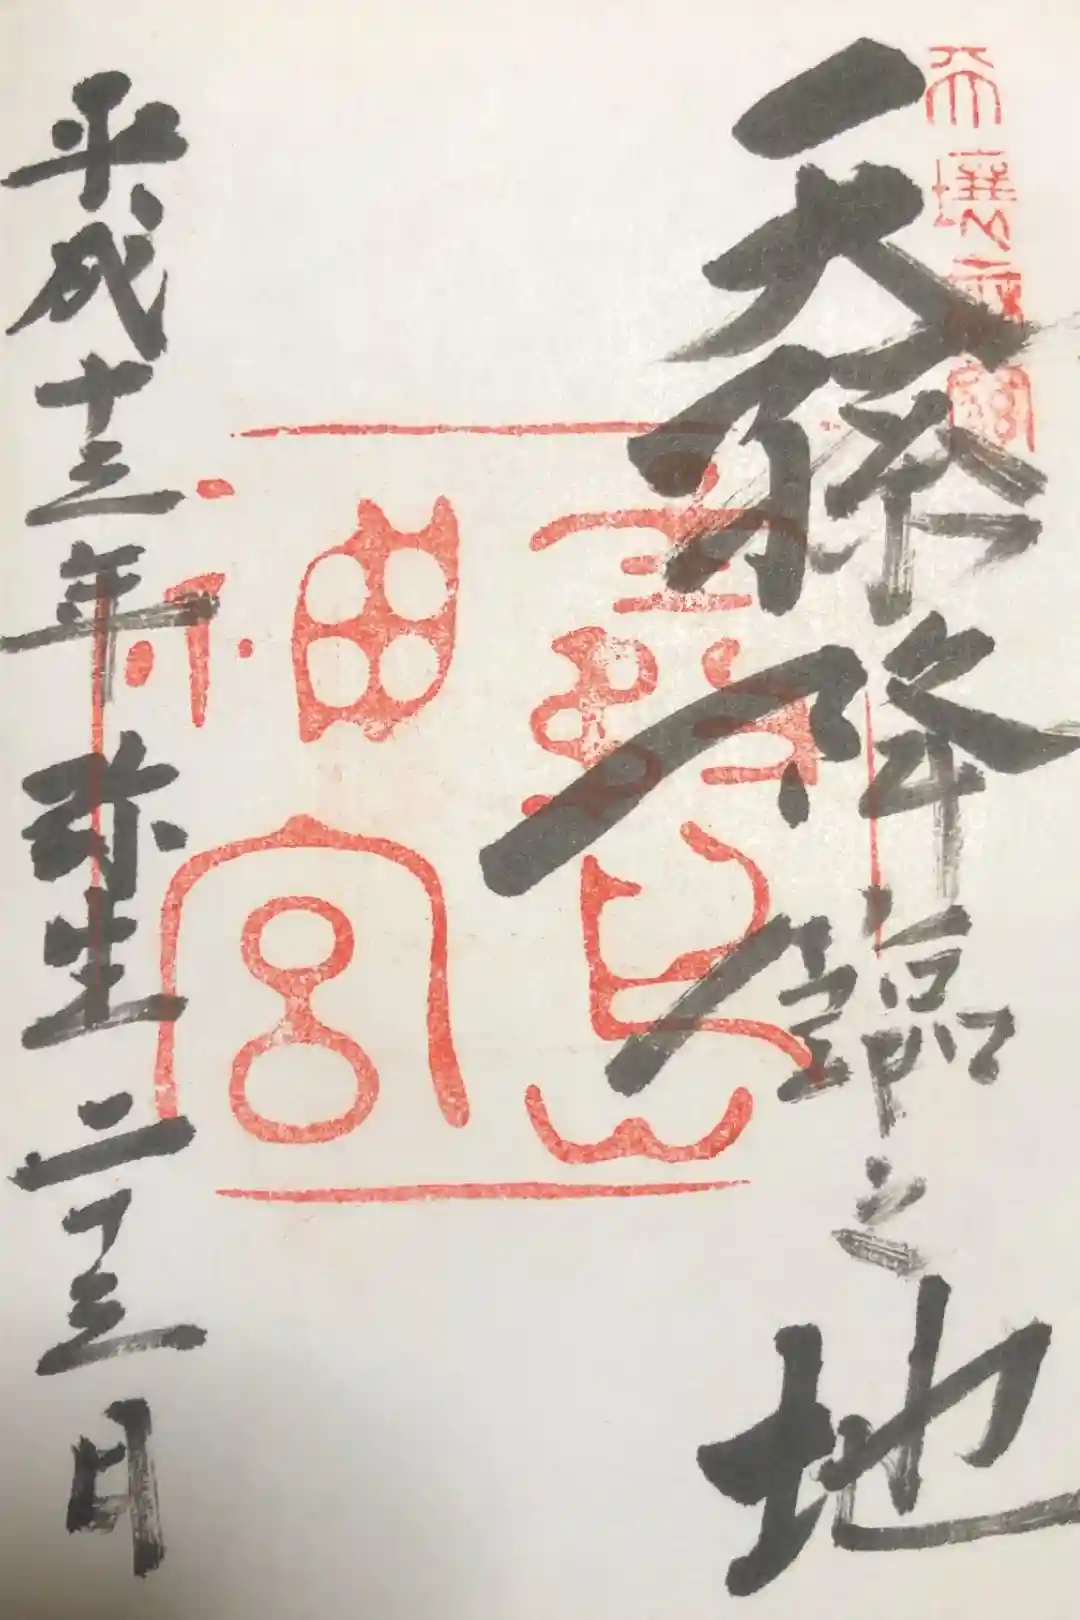 天壤無窮
天孫降臨之地
霧島
神宮
平成十三年弥生二十三日